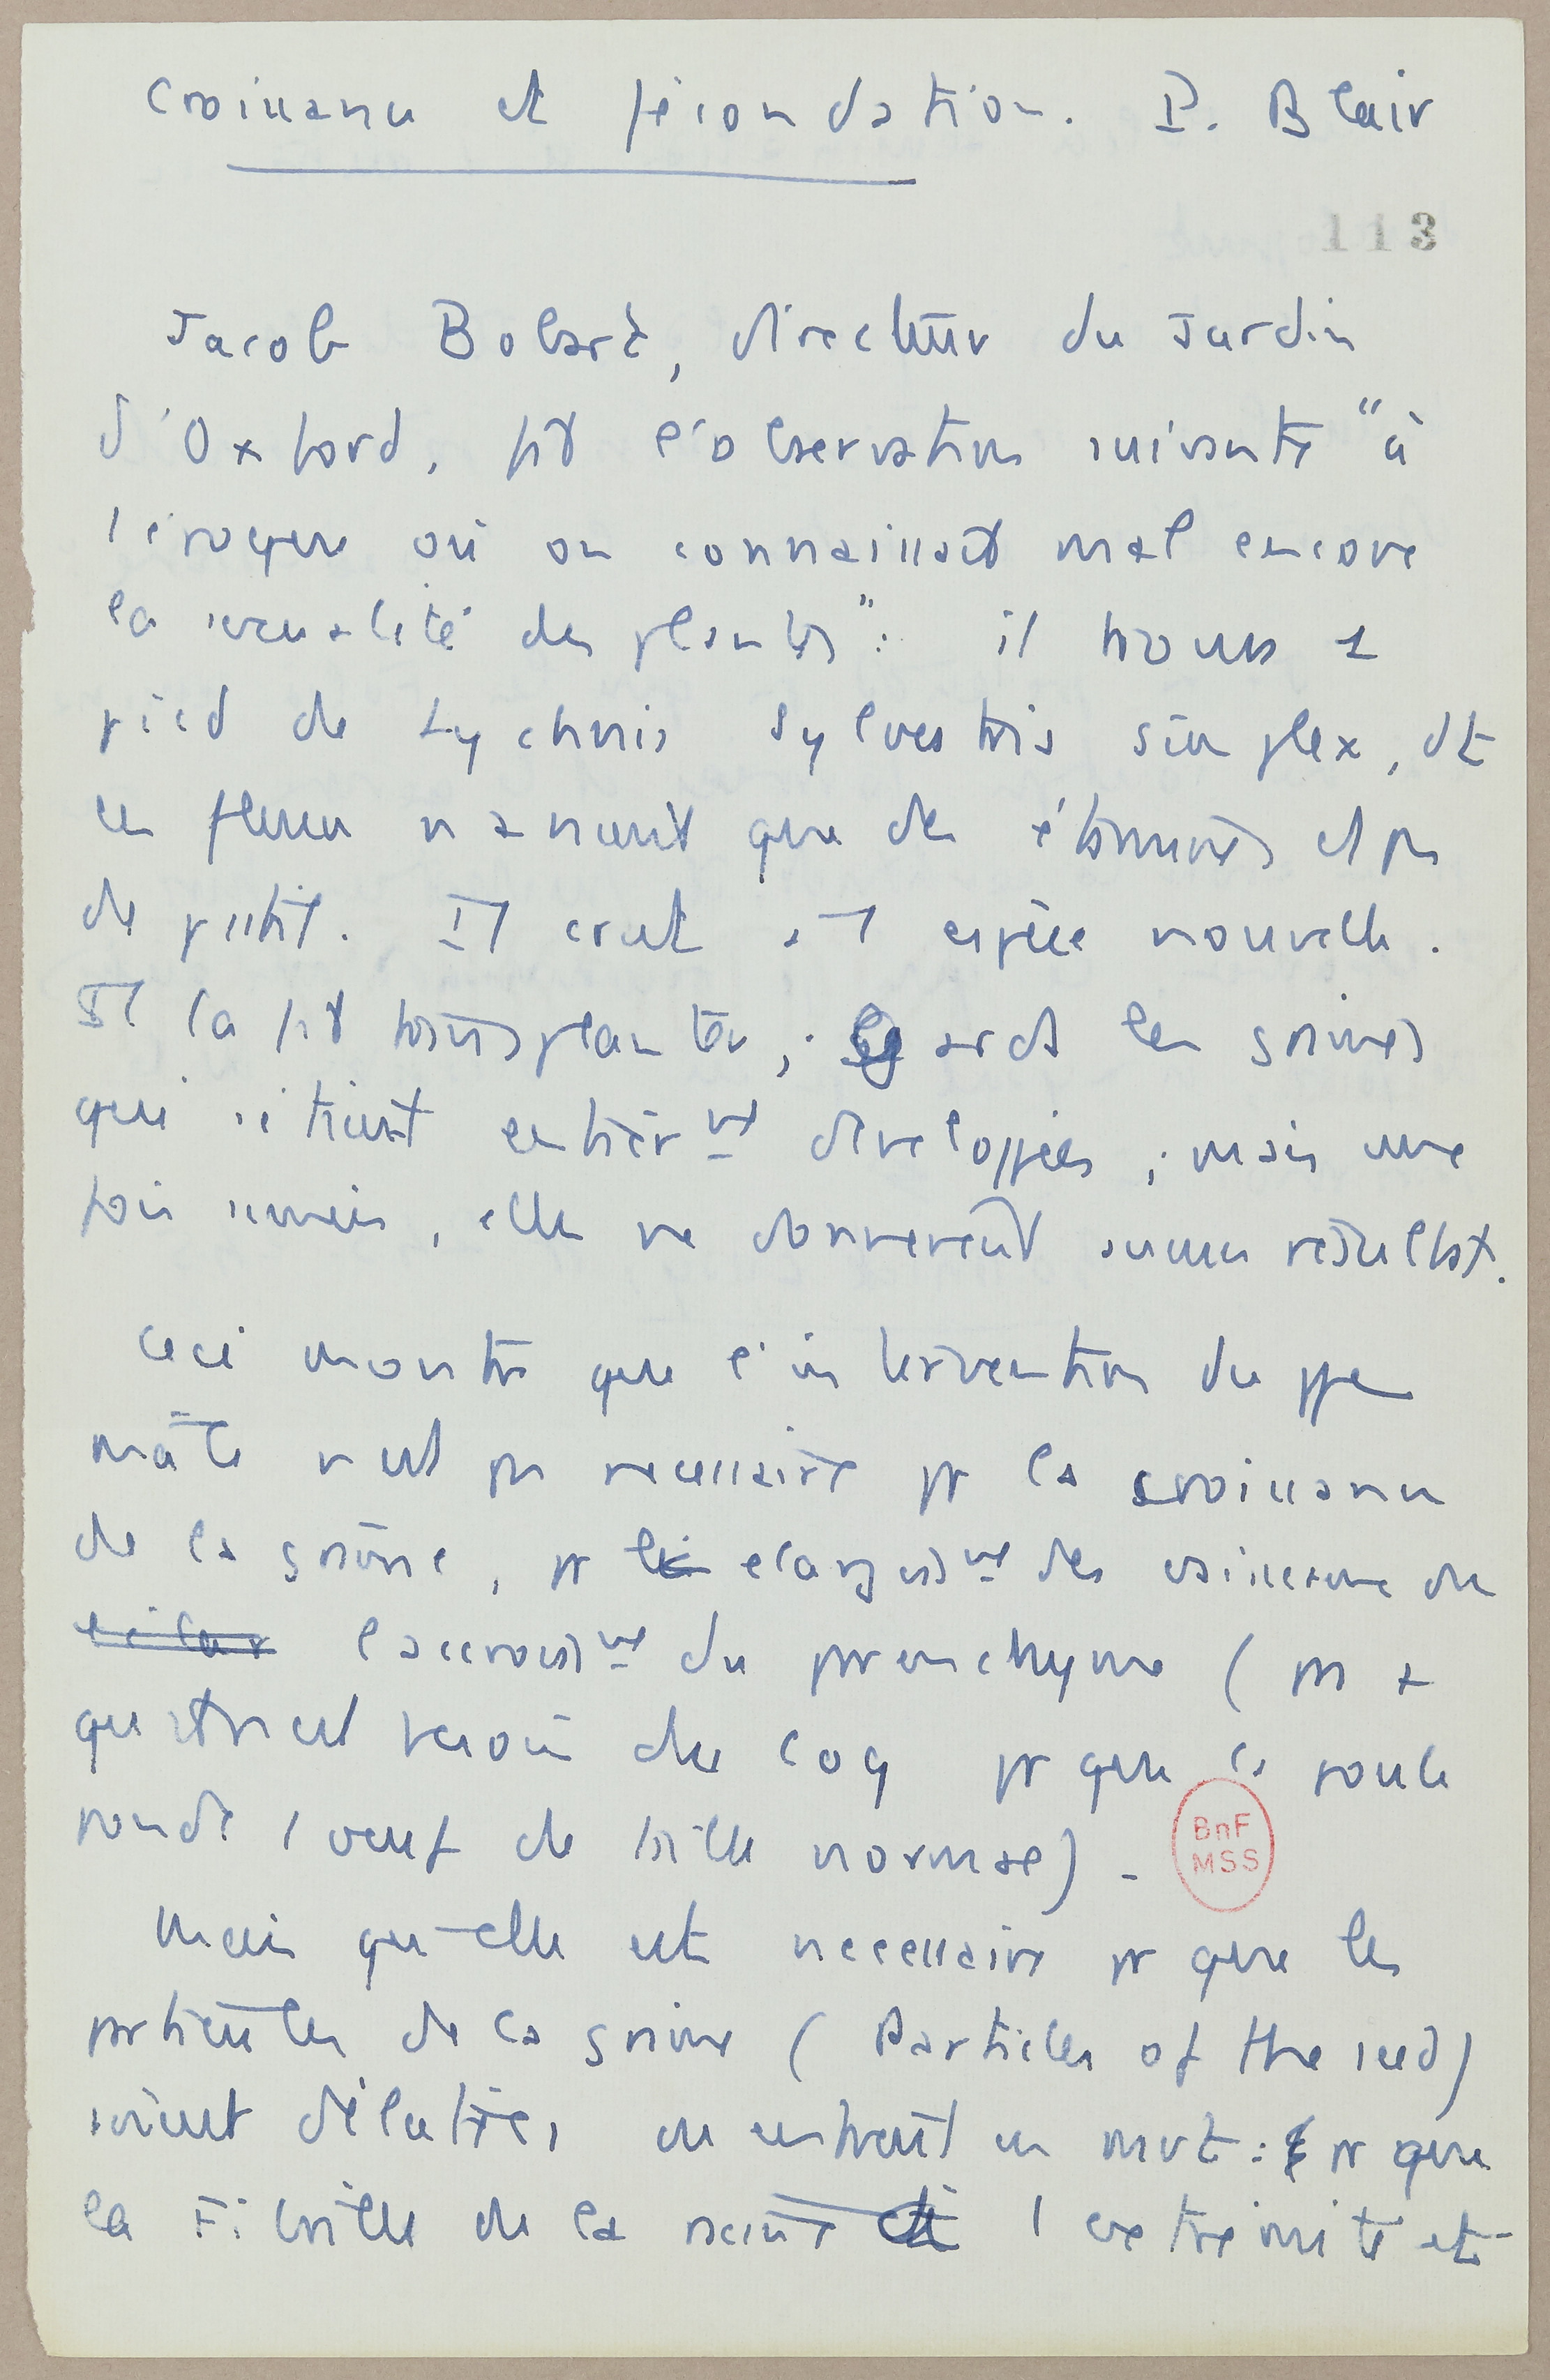 Croissance et fécondation. P. Blair
113
Jacob Bobart, directeur du Jardin
d'Oxford, fit l'observation suivante "à
l'époque où on connaissait mal encore
la sexualité des plantes": il trouva 1
pied de Lychnis Sylvestris simplex, dt
les fleurs n'avaient que des étamines et pas
de pistil. Il crut à 1 espèce nouvelle.
Il la fit transplanter; garda les graines
qui s'étaient entièrmt développées; mais une
fois semées, elles ne donnèrent aucun résultat.
Ceci montre que l'intervention du ppe
mâle n'est pas nécessaire pr la croissance
de la graine, pr élargissmt des vaisseaux ou
l'accroissmt du parenchyme (pas +
qu'il n'est besoin du coq pr que la poule
ponde 1 oeuf de taille normale).
BnF
MSS
Mais qu'elle est nécessaire pr que les
particules de la graine (Particles of the seed)
soient dilatées ou entrent en mvt: pr que
la Fibrille de la racine 1 extrémité et